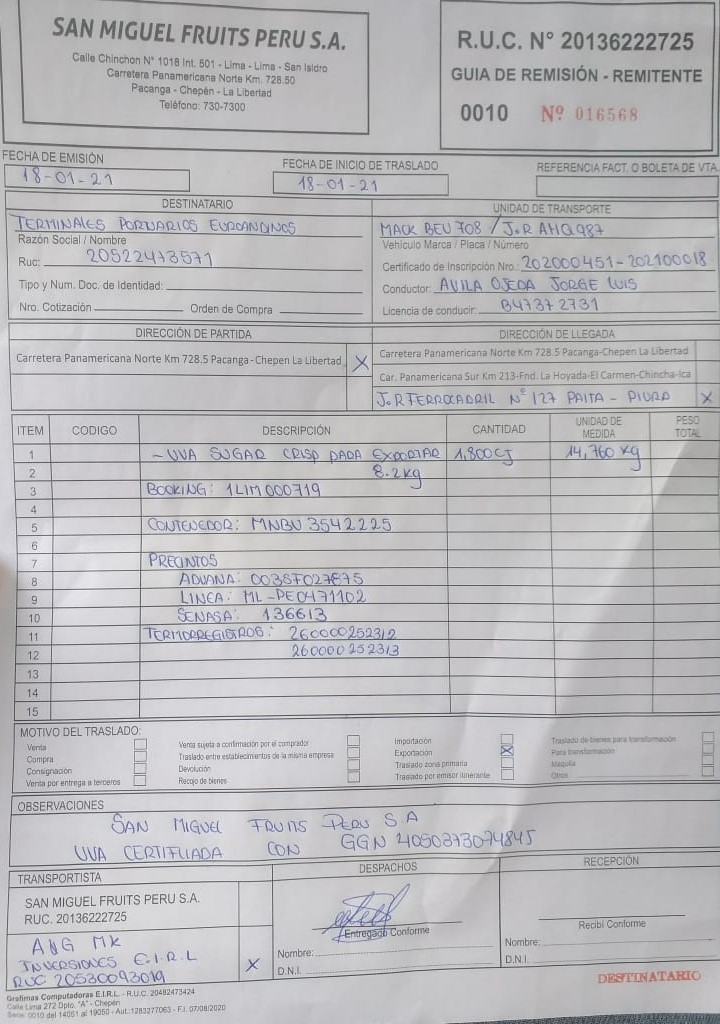 SAN MIGUEL FRUITS PERU S.A.
Calle Chinchon N° 1018 Int. 501 - Lima - Lima - San Isidro
Carretera Panamericana Norte Km. 728.50
Pacanga - Chepén - La Libertad
Teléfono: 730-7300
R.U.C. N° 20136222725
GUIA DE REMISIÓN - REMITENTE
0010 Nº 016568
FECHA DE EMISIÓN
18-01-21
FECHA DE INICIO DE TRASLADO
18-01-21
REFERENCIA FACT. O BOLETA DE VTA.
DESTINATARIO
TERMINALES PORTUARIOS EUROANDINOS
Razón Social / Nombre
Ruc: 20522473571
Tipo y Num. Doc. de Identidad:
Nro. Cotización: Orden de Compra
UNIDAD DE TRANSPORTE
MACK BEU 708 / J.R AHQ987
Vehículo Marca / Placa / Número
Certificado de Inscripción Nro.: 202000451-202100018
Conductor: AVILA OJEDA JORGE LUIS
Licencia de conducir: B47372731
DIRECCIÓN DE PARTIDA
Carretera Panamericana Norte Km 728.5 Pacanga-Chepen La Libertad X
DIRECCIÓN DE LLEGADA
Carretera Panamericana Norte Km 728.5 Pacanga-Chepen La Libertad
Car. Panamericana Sur Km 213-Fnd. La Hoyada-El Carmen-Chincha-Ica
J.R FERROCARRIL N° 127 PAITA - PIURA X
ITEM CODIGO DESCRIPCIÓN CANTIDAD UNIDAD DE MEDIDA PESO TOTAL
1 - UVA SUGAR CRISP PARA EXPORTAR 1,800CJ 14,760 kg
2 8.2kg
3 BOOKING: 1LIM000719
4
5 CONTENEDOR: MNBU 3542225
6
7 PRECINTOS
8 ADUANA: 003ST027875
9 LINEA: ML-PE0471102
10 SENASA: 136613
11 TERMORREGISTROS: 260000252312
12 260000252313
13
14
15
MOTIVO DEL TRASLADO:
Venta
Compra
Consignación
Venta por entrega a terceros
Venta sujeta a confirmación por el comprador
Traslado entre establecimientos de la misma empresa
Devolución
Recojo de bienes
Importación
Exportación X
Traslado zona primaria
Traslado por emisor itinerante
Traslado de bienes para transformación
Para transformación
Maquila
Otros
OBSERVACIONES
SAN MIGUEL FRUITS PERU S.A
UVA CERTIFICADA CON GGN 4050373074845
TRANSPORTISTA
SAN MIGUEL FRUITS PERU S.A.
RUC. 20136222725
ANG MK
INVERSIONES E.I.R.L
RUC 20530093019 X
DESPACHOS
Entregado Conforme
Nombre:
D.N.I.
RECEPCIÓN
Recibi Conforme
Nombre:
D.N.I.
DESTINATARIO
Grafimas Computadoras E.I.R.L. - R.U.C. 20482473424
Calle Lima 272 Dpto. "A" - Chepén
Serie: 0010 del 14051 al 19050 - Aut.:1283277063 - F.I. 07/08/2020